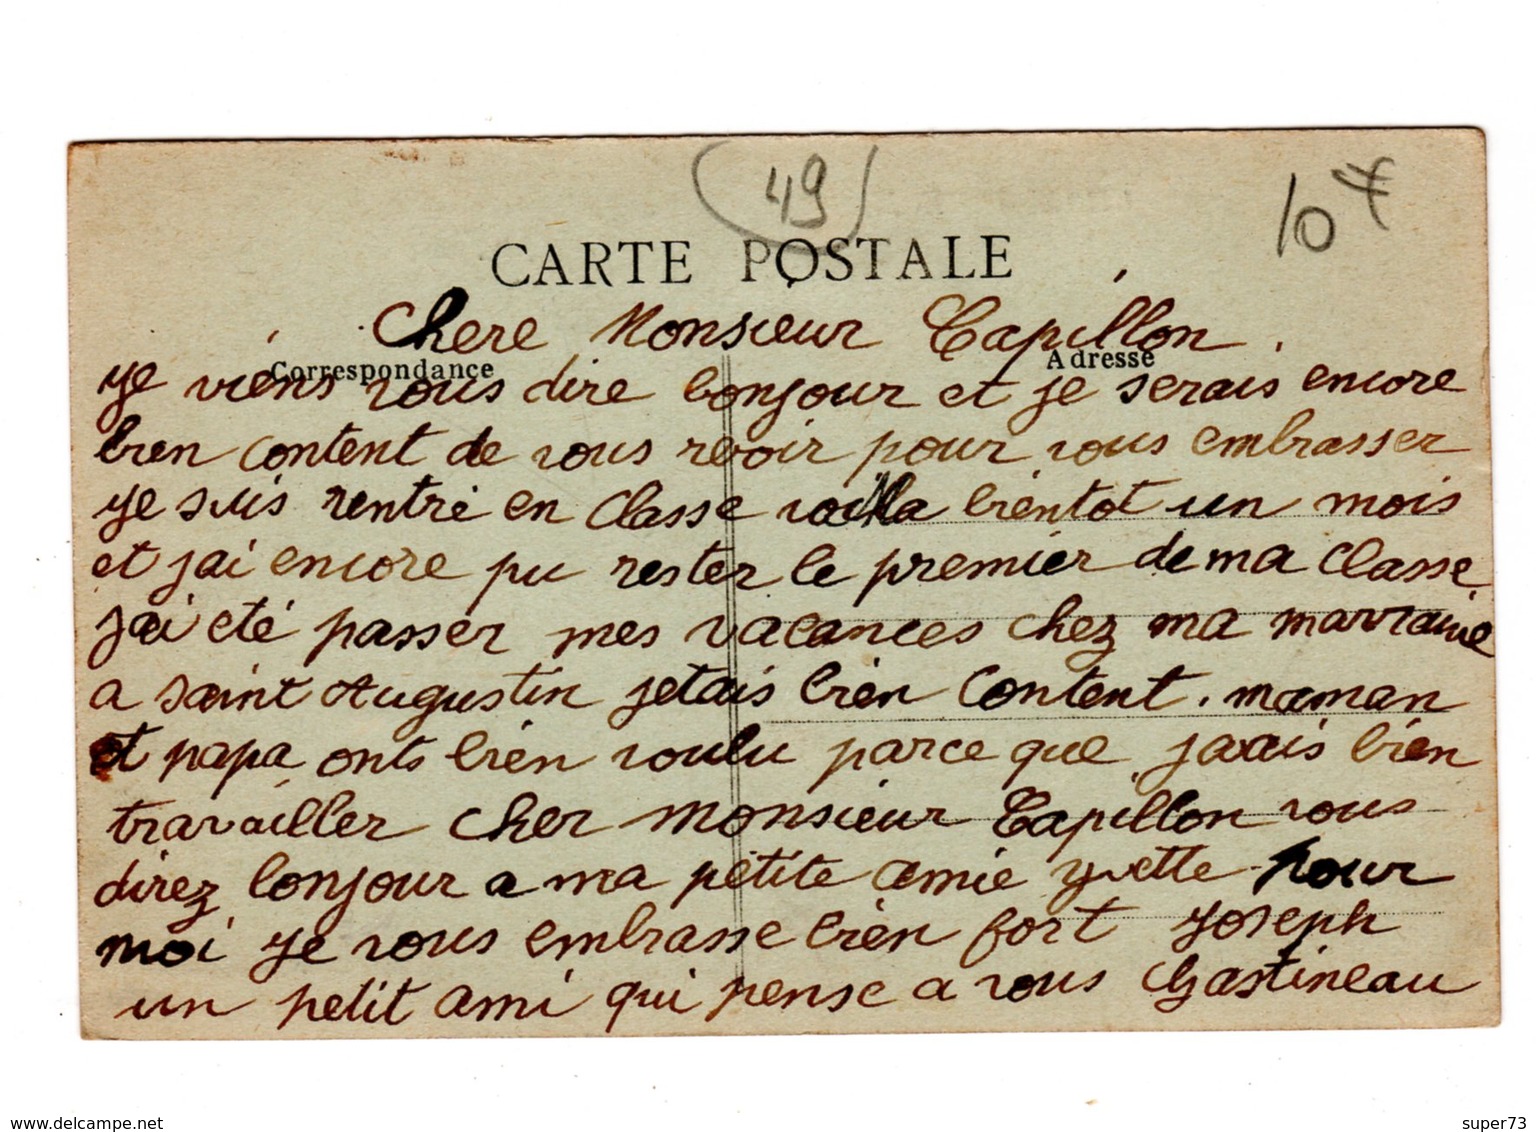 49
10F
CARTE POSTALE
Chere Monsieur Capillon.
Correspondance
Adresse
je viens vous dire bonjour et je serais encore
bien content de vous revoir pour vous embrasser
je suis rentré en classe voilla bientot un mois
et jai encore pu rester le premier de ma classe
jai eté passer mes vacances chez ma marraine
a saint Augustin jetais bien content. maman
et papa onts bien voulu parce que javais bien
travailler cher monsieur Capillon vous
direz bonjour a ma petite amie yvette pour
moi je vous embrasse bien fort Joseph
un petit ami qui pense a vous Chastineau
www.delcampe.net
super73